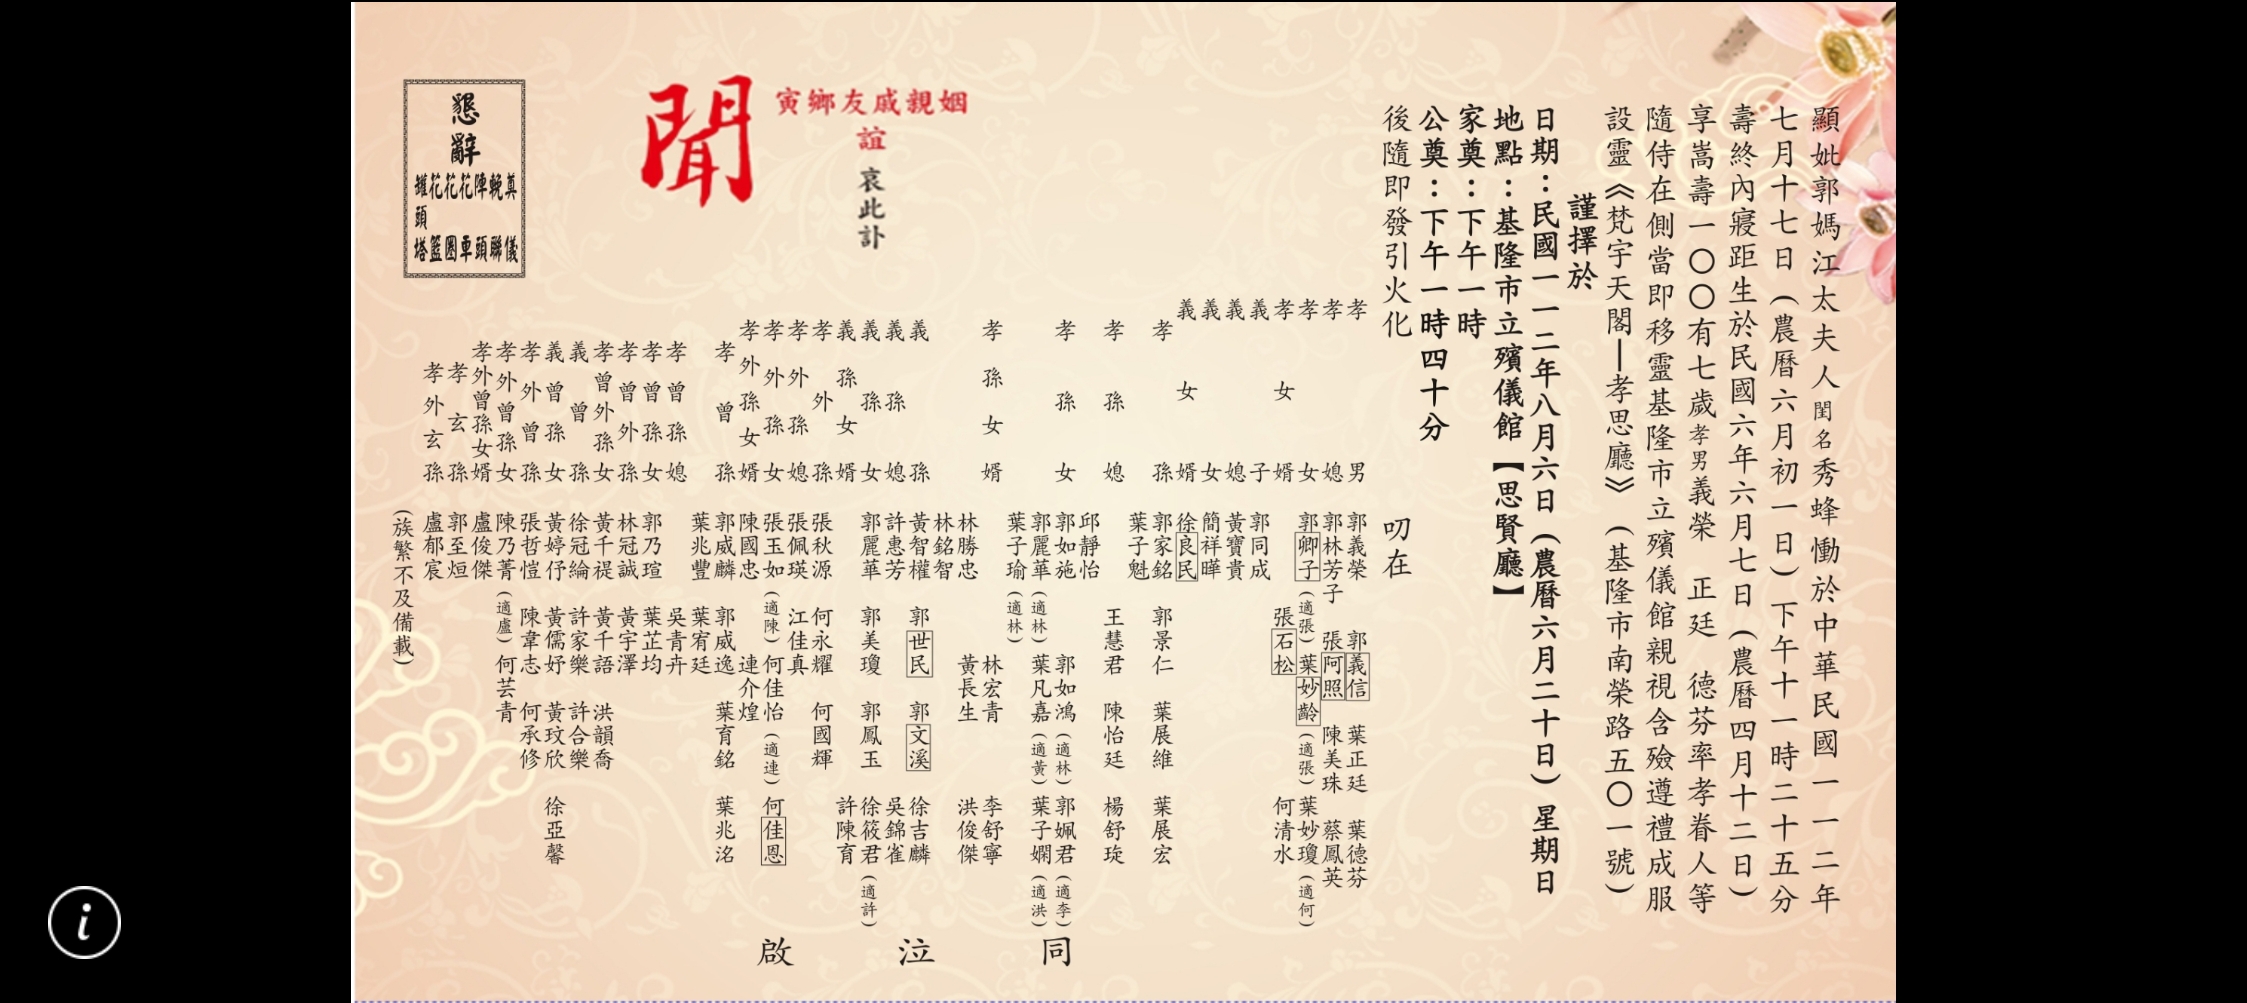 顯妣郭媽江太夫人閨名秀蜂慟於中華民國一一二年
七月十七日(農曆六月初一日)下午十一時二十五分
壽終內寢距生於民國六年六月七日(農曆四月十二日)
享嵩壽一〇〇有七歲孝男義榮 正廷 德芬率孝眷人等
隨侍在側當即移靈基隆市立殯儀館親視含殮遵禮成服
設靈《梵宇天閣—孝思廳》(基隆市南榮路五〇一號)
謹擇於
日期:民國一一二年八月六日(農曆六月二十日)星期日
地點:基隆市立殯儀館【思賢廳】
家奠:下午一時
公奠:下午一時四十分
後隨即發引火化 叨在
姻親戚友鄉寅
誼
哀此訃
聞
懇辭
奠儀
輓聯
陣頭
花車
花圈
花籃
罐頭塔
孝男 郭義榮 郭義信 葉正廷 葉德芬
孝媳 郭林芳子 張阿照 陳美珠 蔡鳳英
孝女 郭卿子(適張) 葉妙齡(適張) 葉妙瓊(適何)
孝女婿 張石松 何清水
義子 郭同成
義媳 黃寶貴
義女 簡祥曄
義女婿 徐良民
孝孫 郭家銘 郭景仁 葉展維 葉展宏
葉子魁
孝孫媳 王慧君 陳怡廷 楊舒琁
邱靜怡
孝孫女 郭如施 郭如鴻(適林) 郭姵君(適李)
郭麗華(適林) 葉凡嘉(適黃) 葉子嫻(適洪)
葉子瑜(適林)
孝孫女婿 林宏青 李舒寧
林勝忠 黃長生 洪俊傑
林銘智
義孫 黃智權 郭世民 郭文溪 徐吉麟
義孫媳 許惠芳 吳錦雀
義孫女 郭麗華 郭美瓊 郭鳳玉 徐筱君(適許)
義孫女婿 許陳育
孝外孫 張秋源 何永耀 何國輝
孝外孫媳 張佩瑛 江佳真
孝外孫女 張玉如(適陳) 何佳怡(適連) 何佳恩
孝外孫女婿 陳國忠 連介煌
孝曾孫 郭威麟 郭威逸 葉育銘 葉兆洺
葉兆豐 葉宥廷
孝曾孫媳 吳青卉
孝曾孫女 郭乃瑄 葉芷均
孝曾外孫 林冠誠 黃宇澤
孝曾外孫女 黃千禔 黃千語 洪韻喬
義曾孫 徐冠綸 許家樂 許合樂
義曾孫女 黃婷伃 黃儒妤 黃玟欣 徐亞馨
孝外曾孫 張哲愷 陳韋志 何承修
孝外曾孫女 陳乃菁(適盧) 何芸青
孝外曾孫女婿 盧俊傑
孝玄孫 郭至烜
孝外玄孫 盧郁宸
(族繁不及備載)
同泣啟